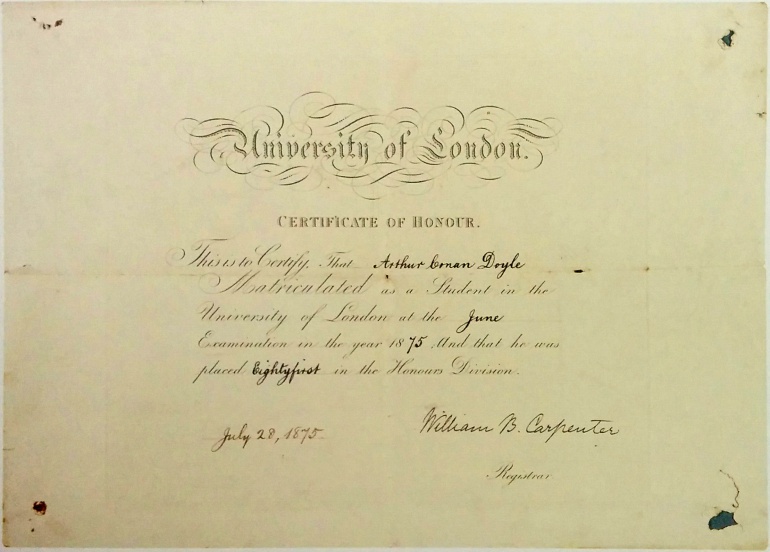 University of London.
CERTIFICATE OF HONOUR.
This is to Certify, That Arthur Conan Doyle
Matriculated as a Student in the
University of London at the June
Examination in the year 1875. And that he was
placed Eightyfirst in the Honours Division.
July 28, 1875
William B. Carpenter
Registrar